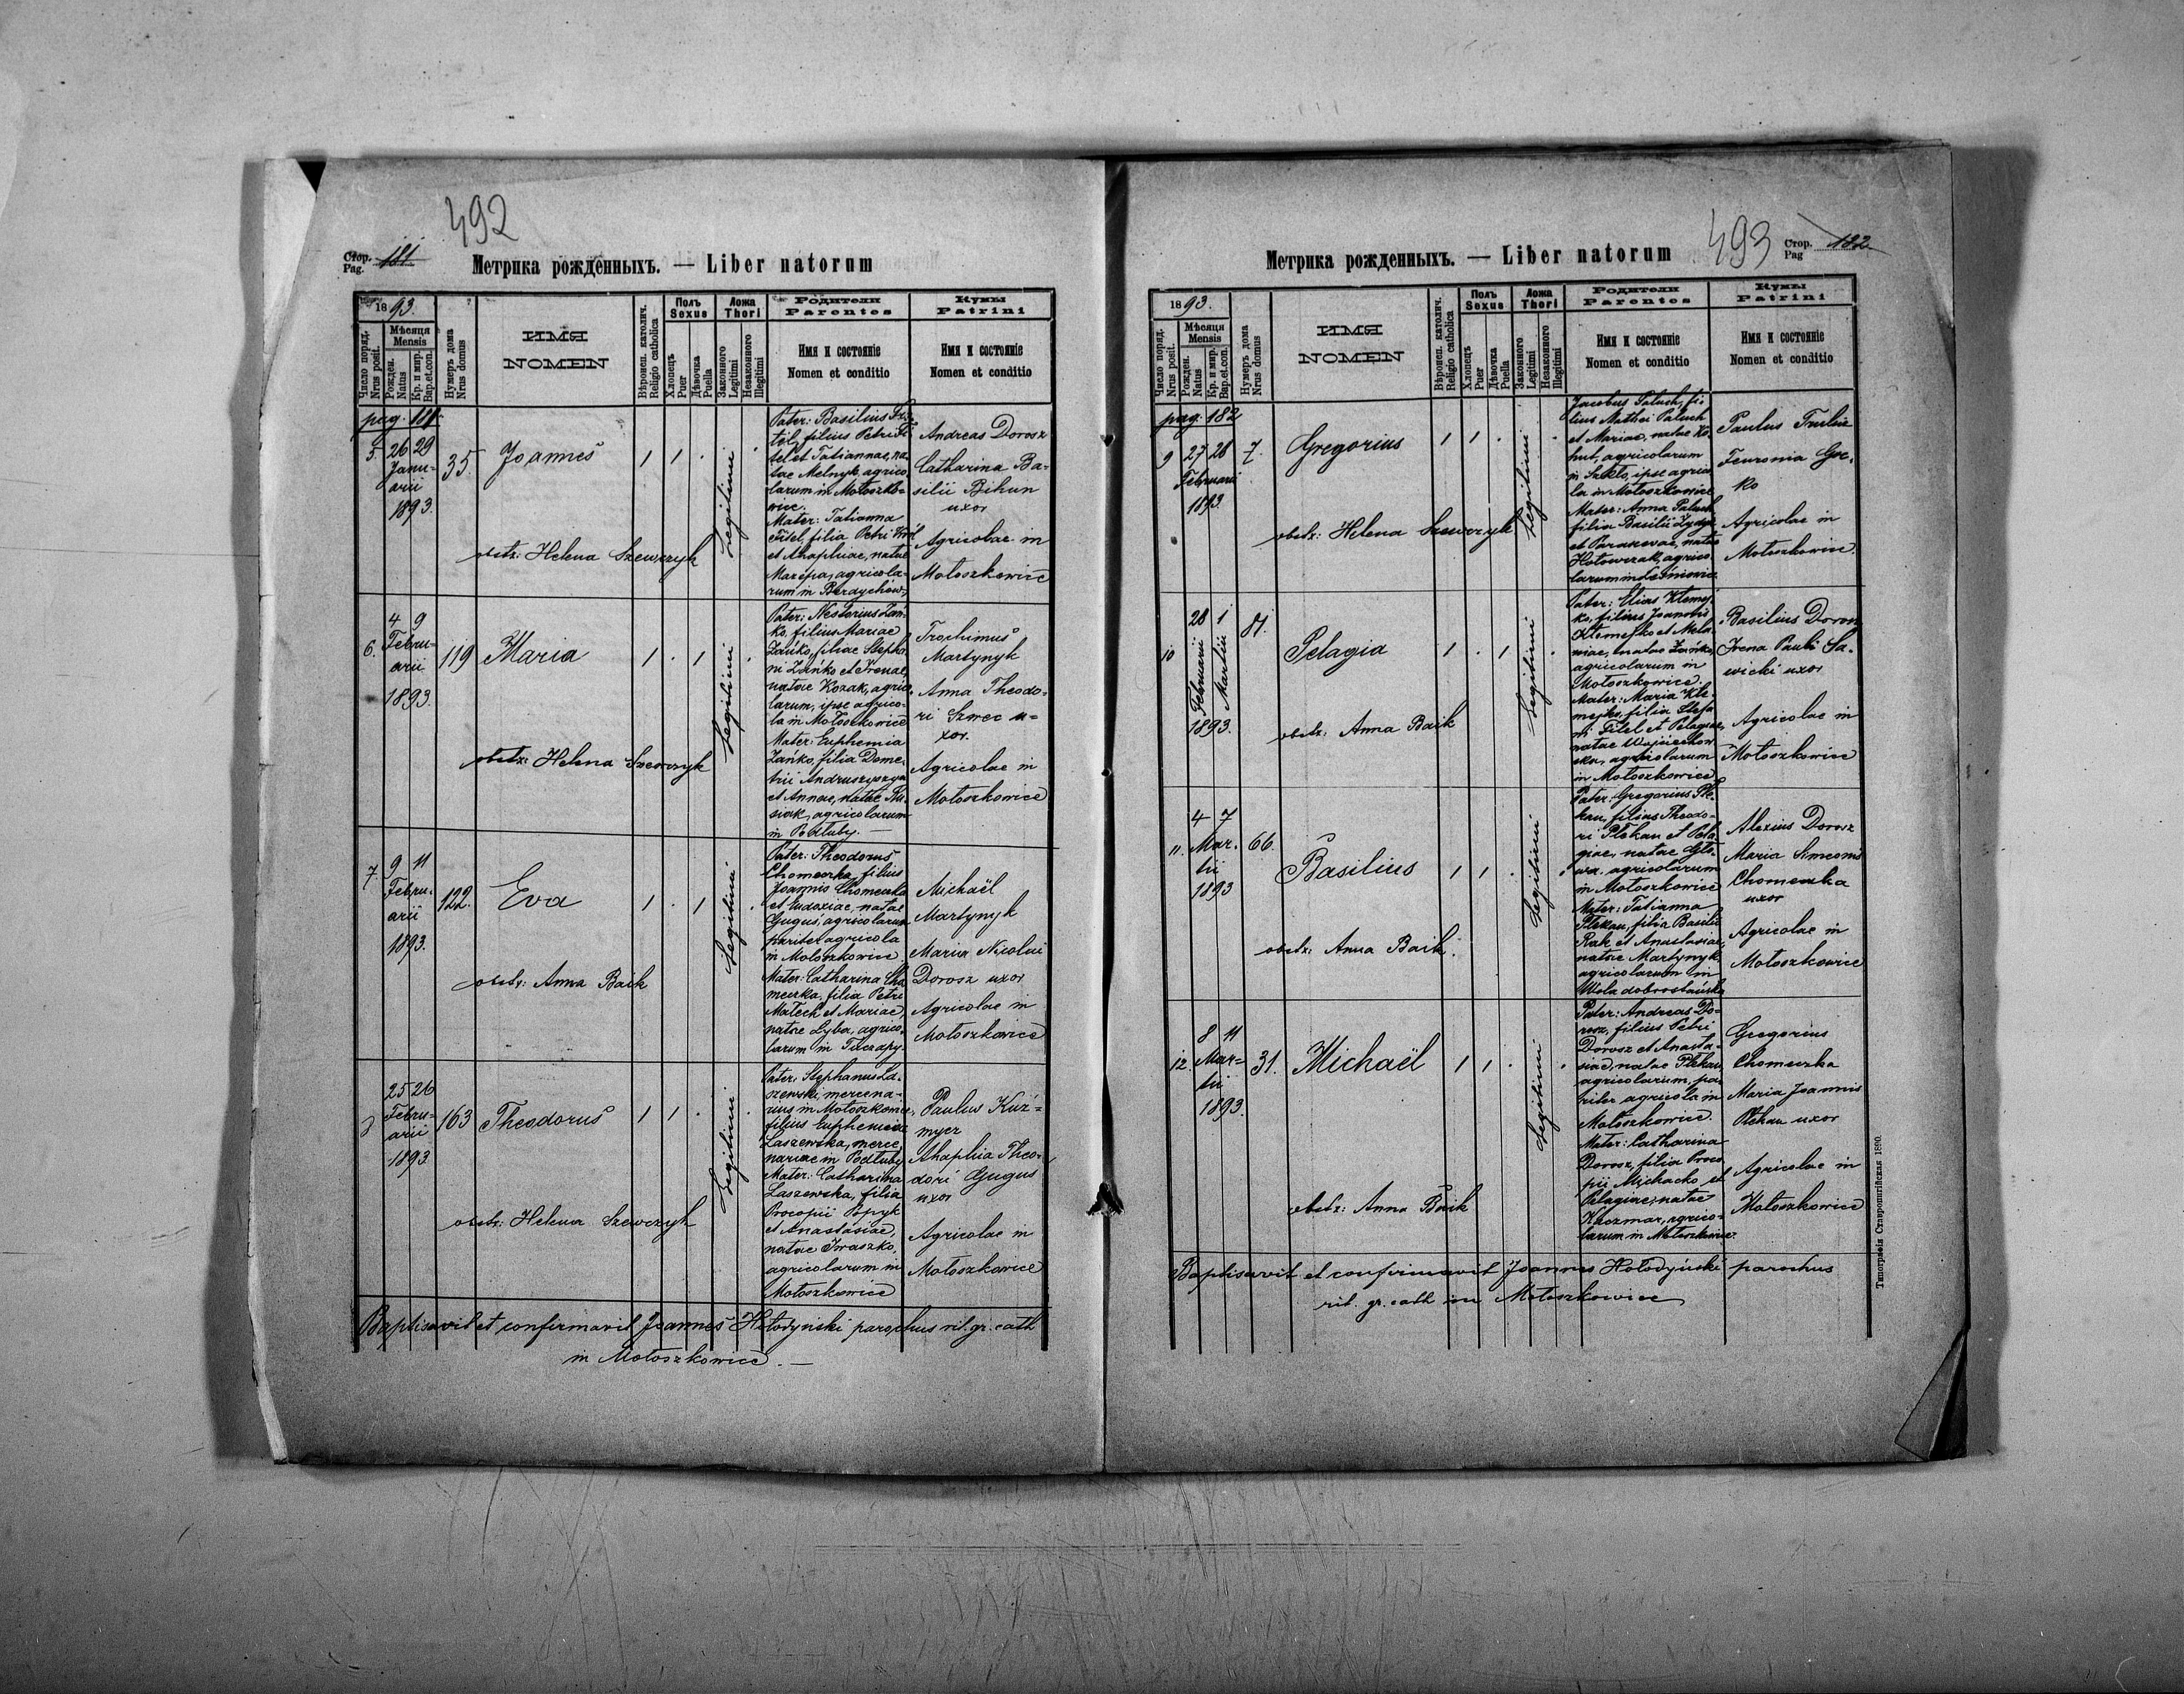 492
Стор. Pag. 181
Метрика рожденныхъ. — Liber natorum
1893.
Число поряд. Nrus posit.
Мѣсяця Mensis
Рожден. Natus
Кр. и мир. Bap. et con.
Нумеръ дома Nrus domus
ИМЯ
NOMEN
Вѣроисп. католич. Religio catholica
Полъ Sexus
Хлопецъ Puer
Дѣвочка Puella
Ложа Thori
Законного Legitimi
Незаконного Illegitimi
Родители Parentes
Имя и состоянiе
Nomen et conditio
Кумы Patrini
Имя и состоянiе
Nomen et conditio
pag. 181
5. 26 29 Janu-
arii
1893.
35.
Joannes
1 1 .
Legitimi
obstr: Helena Szewczyk
Pater: Basilius Fi-
tel, filius Petri Fi-
tel et Tatiannae, na-
tae Melnyk, agrico-
larum in Mołoszko-
wice.
Mater: Tatianna
Fitel, filia Petri Król
et Ahaphiae, natae
Mazepa, agricola-
rum in Berdychów.
Andreas Dorosz
Catharina Ba-
silii Bihun
uxor
Agricolae in
Mołoszkowice
6. 4 9
Febru-
arii
1893.
119
Maria
1 . 1 .
Legitimi
obstr: Helena Szewczyk
Pater: Nesterius Zań-
ko, filius Mariae
Zańko, filiae Stepha-
ni Zańko et Irenae,
natae Kozak, agrico-
larum, ipse agrico-
la in Mołoszkowice
Mater: Euphemia
Zańko, filia Deme-
trii Andruszyszyn
et Annae, natae
siak, agricolarum
in Podłuby. —
Trochimus
Martynyk
Anna Theodo-
ri Szwec u-
xor.
Agricolae in
Mołoszkowice
7. 9 11
Febru-
arii
1893.
122.
Eva
1 . 1 .
Legitimi
obstr: Anna Baik
Pater: Theodorus
Chomeczka, filius
Joannis Chomeczka
et Eudoxiae, natae
Gugus, agricolarum
pariter agricola
in Mołoszkowice
Mater: Catharina Cho-
meczka, filia Petri
Matech et Mariae,
natae Łyba, agrico-
larum in Tuczapy.
Michaël
Martynyk
Maria Nicolai
Dorosz uxor
Agricolae in
Mołoszkowice
25 26
Febru-
arii
1893
163
Theodorus
1 1 . .
Legitimi
obstr: Helena Szewczyk
Pater: Stephanus La-
szewski, mercena-
rius in Mołoszkowice,
filius Euphemiae
Laszewska, merce-
nariae in Podłuby
Mater: Catharina
Laszewska, filia
Procopii Popyk
et Anastasiae,
natae Iwaszko,
agricolarum in
Mołoszkowice
Paulus Kuź-
myez
Ahaphia Theo-
dori Gugus
uxor
Agricolae in
Mołoszkowice
Baptisavit et confirmavit Joannes Hołodyński parochus rit. gr. cath
in Mołoszkowice. —
493
Стор. Pag 182
Метрика рожденныхъ. — Liber natorum
1893.
Число поряд. Nrus posit.
Мѣсяця Mensis
Рожден. Natus
Кр. и мир. Bap. et con.
Нумеръ дома Nrus domus
ИМЯ
NOMEN
Вѣроисп. католич. Religio catholica
Полъ Sexus
Хлопецъ Puer
Дѣвочка Puella
Ложа Thori
Законного Legitimi
Незаконного Illegitimi
Родители Parentes
Имя и состоянiе
Nomen et conditio
Кумы Patrini
Имя и состоянiе
Nomen et conditio
pag. 182
9 27 28
Februarii
1893
7.
Gregorius
1 1 . .
Legitimi
obstr: Helena Szewczyk
Jacobus Paluch, fi-
lius Mathei Paluch
et Mariae, natae Ko-
hut, agricolarum
in Szkło, ipse agrico-
la in Mołoszkowice
Mater: Anna Paluch
filia Basilii
et Parascevae, natae
Hołowczak, agrico-
larum in
Paulus
Feuronia Gre-
ko
Agricolae in
Mołoszkowice.
10 28 1
Februarii Martii
1893.
81.
Pelagia
1 . 1 .
Legitimi
obstr: Anna Baik
Pater: Elias Kłemej-
ko, filius Joannis
Kłemejko et Mela-
niae, natae Zańko,
agricolarum in
Mołoszkowice.
Mater: Maria Kłe-
mejko, filia Stefa-
ni Fitel et Pelagiae,
natae Wojciechow-
ska, agricolarum
in Mołoszkowice
Basilius Dorosz
Irena Pauli Sa-
wicki uxor
Agricolae in
Mołoszkowice
11. 4 7
Mar-
tii
1893
66.
Basilius
1 1 . .
Legitimi
obstr: Anna Baik.
Pater: Gregorius Płe-
kan, filius Theodo-
ri Płekan et Pela-
giae, natae Gło-
wa, agricolarum
in Mołoszkowice
Mater: Tatianna
Płekan, filia Basilii
Rak et Anastasiae,
natae Martynyk,
agricolarum in
Wola dobrostańska
Alexius Dorosz
Maria Simeonis
Chomeczka
uxor
Agricolae in
Mołoszkowice
12. 8 11
Mar-
tii
1893.
31.
Michaël
1 1 . .
Legitimi
obstr: Anna Baik
Pater: Andreas Do-
rosz, filius Petri
Dorosz et Anasta-
siae, natae Płekan
agricolarum, pa-
riter agricola in
Mołoszkowice.
Mater: Catharina
Dorosz, filia Proco-
pii Michacko et
Pelagiae, natae
Kaczmar, agrico-
larum in Mołoszkowice.
Gregorius
Chomeczka
Maria Joannis
Płekan uxor
Agricolae in
Mołoszkowice
Baptisavit et confirmavit Joannes Hołodyński parochus
rit. gr. cath in Mołoszkowice
Типографія Ставропигійская 1890.